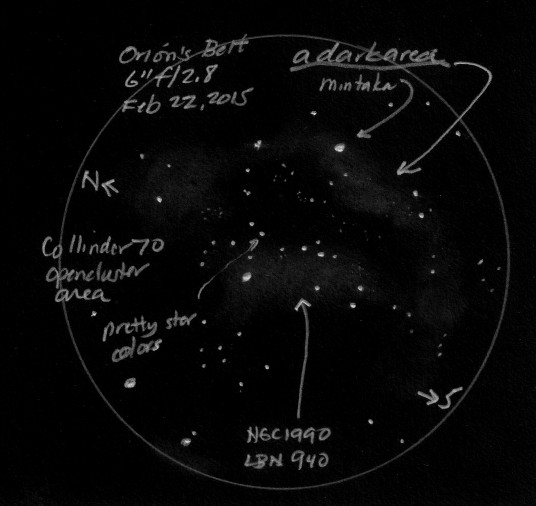 Orion's Belt
6" f/2.8
Feb 22, 2015
a dark area
mintaka
N
Collinder 70
opencluster
area
pretty star
colors
S
NGC1990
LBN 940